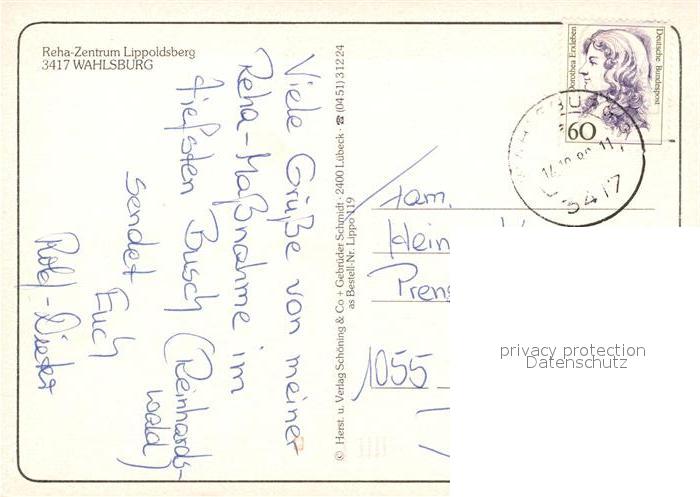 Reha-Zentrum Lippoldsberg
3417 WAHLSBURG
Viele Grüße von meiner
Reha-Maßnahme im
tiefsten Busch (Reinhards-
wald)
sendet
Euch
Rolf-Dieter
© Herst. u. Verlag Schöning & Co + Gebrüder Schmidt · 2400 Lübeck · ☎ (0451) 31224
as Bestell-Nr. Lippo 119
Dorothea Erxleben
Deutsche Bundespost
60
3417
Fam.
Hein
1055
privacy protection
Datenschutz